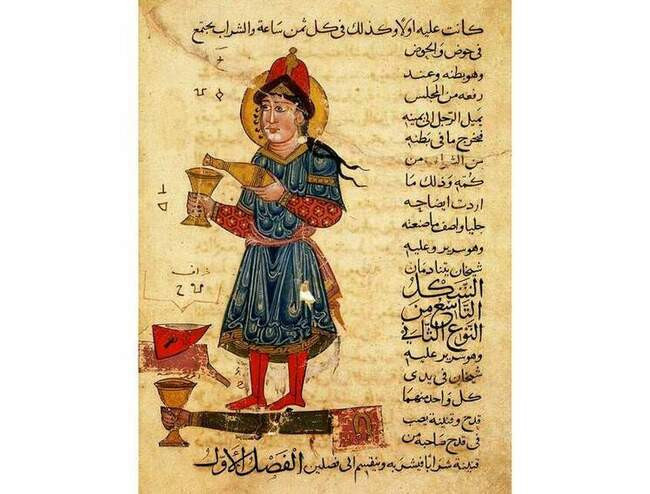 كانت عليه اولا وكذلك في كل ثمن ساعة والشراب يجتمع
في حوض والحوض
وهو بطنه وعند
رفعه من المجلس
يميل الرجل الى يمينه
فيخرج ما في بطنه
من الشراب من
كمه وذلك ما
اردت ايضاحه
جليا واصف ما صنعته
وهو سرير وعليه
شيخان يتنادمان
الشكل
التاسع من
النوع الثاني
وهو سرير عليه
شيخان في يدي
كل واحد منهما
قدح وقنينة يصب
في قدح صاحبه من
قنينة شرابا فيشربه وينقسم الى فصلين الفصل الاول